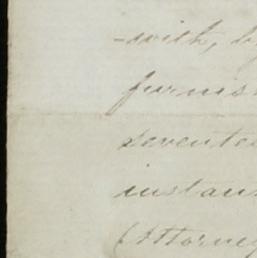 -with, by
furnis
sevente
instan
(Attorney